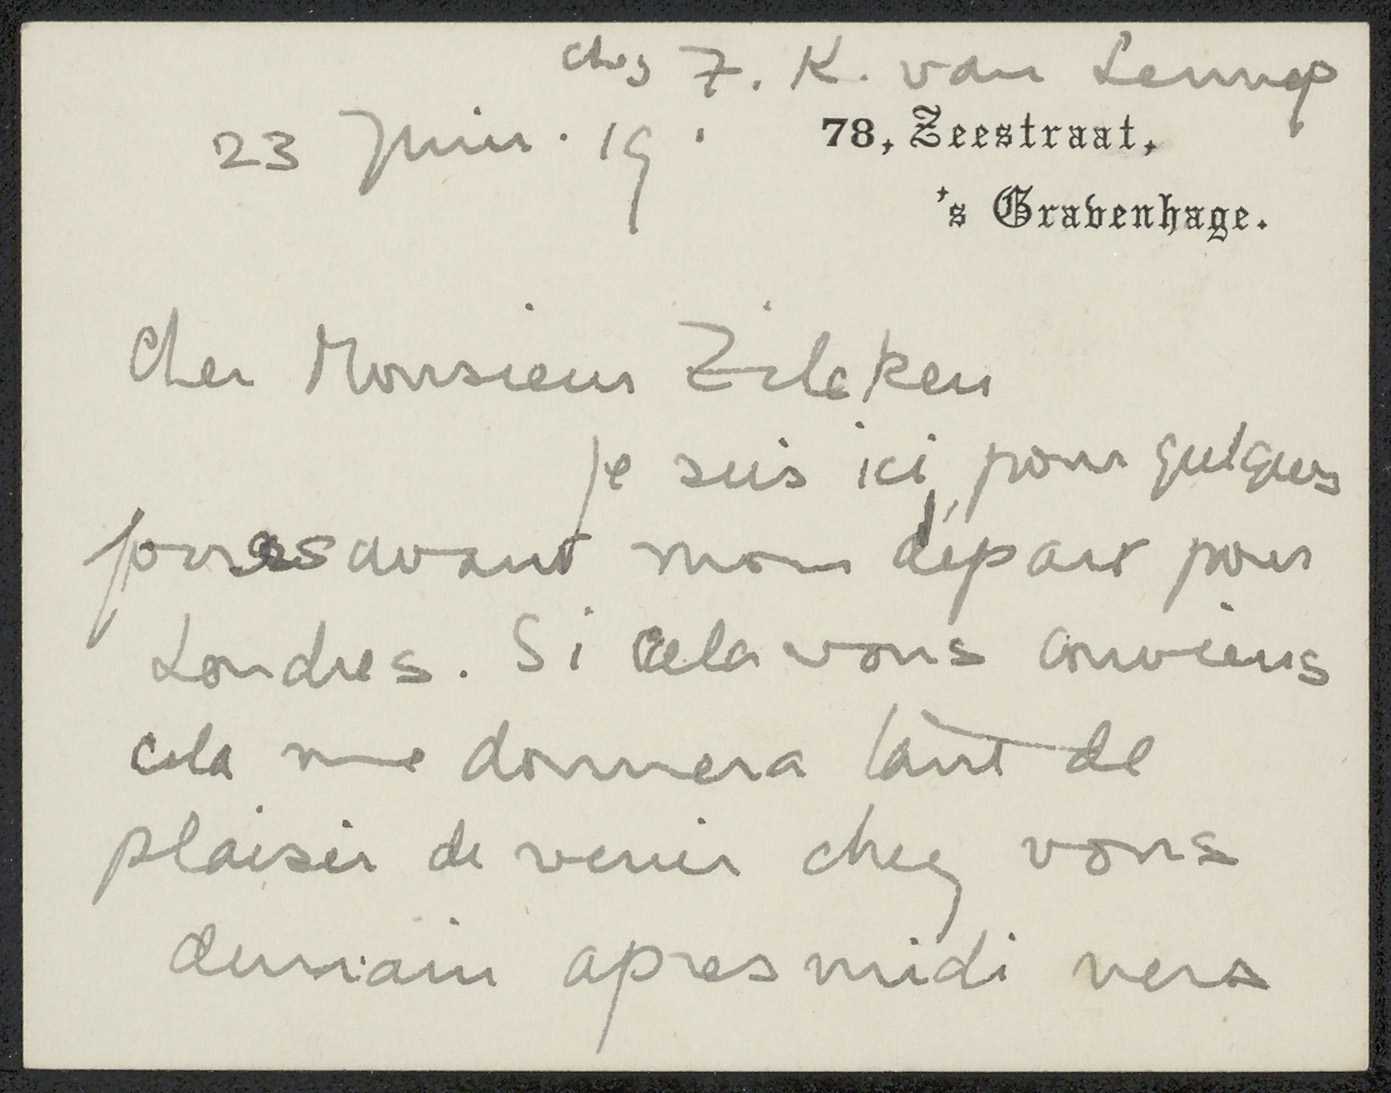 chez F. K. van Lennep
23 Juin. 19.
78, Zeestraat,
's Gravenhage.
Cher Monsieur Zilcken
je suis ici pour quelques
jours avant mon départ pour
Londres. Si cela vous conviens
cela me donnera tant de
plaisir de venir chez vous
demain apres midi vers